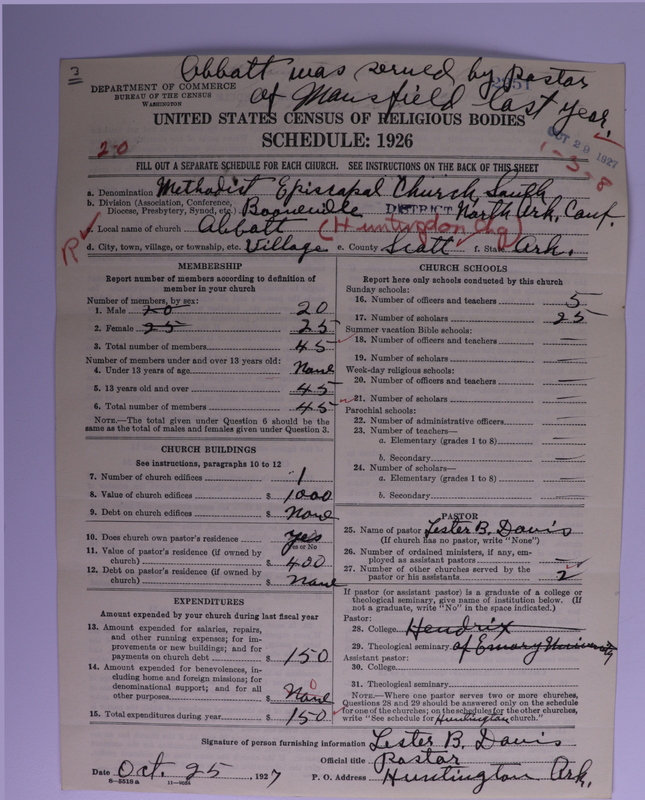 3
Abbott was served by pastor
of Mansfield last year.
DEPARTMENT OF COMMERCE
BUREAU OF THE CENSUS
WASHINGTON
UNITED STATES CENSUS OF RELIGIOUS BODIES
SCHEDULE: 1926
OCT 29 1927
20
1-3-8
FILL OUT A SEPARATE SCHEDULE FOR EACH CHURCH. SEE INSTRUCTIONS ON THE BACK OF THIS SHEET
a. Denomination Methodist Episcopal Church, South
b. Division (Association, Conference, Diocese, Presbytery, Synod, etc.) Booneville DISTRICT North Ark. Conf.
c. Local name of church Abbott (Huntington Chg)
R
d. City, town, village, or township, etc. Village e. County Scott f. State Ark.
MEMBERSHIP
Report number of members according to definition of
member in your church
Number of members, by sex:
1. Male 20 20
2. Female 25 25
3. Total number of members 45
Number of members under and over 13 years old:
4. Under 13 years of age None
5. 13 years old and over 45
6. Total number of members 45
NOTE.—The total given under Question 6 should be the
same as the total of males and females given under Question 3.
CHURCH BUILDINGS
See instructions, paragraphs 10 to 12
7. Number of church edifices 1
8. Value of church edifices $ 1000
9. Debt on church edifices $ None
10. Does church own pastor's residence yes
Yes or No
11. Value of pastor's residence (if owned by
church) $ 400
12. Debt on pastor's residence (if owned by
church) $ None
EXPENDITURES
Amount expended by your church during last fiscal year
13. Amount expended for salaries, repairs,
and other running expenses; for im-
provements or new buildings; and for
payments on church debt $ 150
14. Amount expended for benevolences, in-
cluding home and foreign missions; for
denominational support; and for all
other purposes $ None 0
15. Total expenditures during year $ 150
CHURCH SCHOOLS
Report here only schools conducted by this church
Sunday schools:
16. Number of officers and teachers 5
17. Number of scholars 25
Summer vacation Bible schools:
18. Number of officers and teachers
19. Number of scholars
Week-day religious schools:
20. Number of officers and teachers
21. Number of scholars
Parochial schools:
22. Number of administrative officers
23. Number of teachers—
a. Elementary (grades 1 to 8)
b. Secondary
24. Number of scholars—
a. Elementary (grades 1 to 8)
b. Secondary
PASTOR
25. Name of pastor Lester B. Davis
(If church has no pastor, write "None")
26. Number of ordained ministers, if any, em-
ployed as assistant pastors
27. Number of other churches served by the
pastor or his assistants 2
If pastor (or assistant pastor) is a graduate of a college or
theological seminary, give name of institution below. (If
not a graduate, write "No" in the space indicated.)
Pastor:
28. College Hendrix
29. Theological seminary of Emory University
Assistant pastor:
30. College
31. Theological seminary
NOTE.—Where one pastor serves two or more churches,
Questions 28 and 29 should be answered only on the schedule
for one of the churches; on the schedules for the other churches,
write "See schedule for Huntington church."
Signature of person furnishing information Lester B. Davis
Official title Pastor
Date Oct. 25, 1927 P. O. Address Huntington Ark.